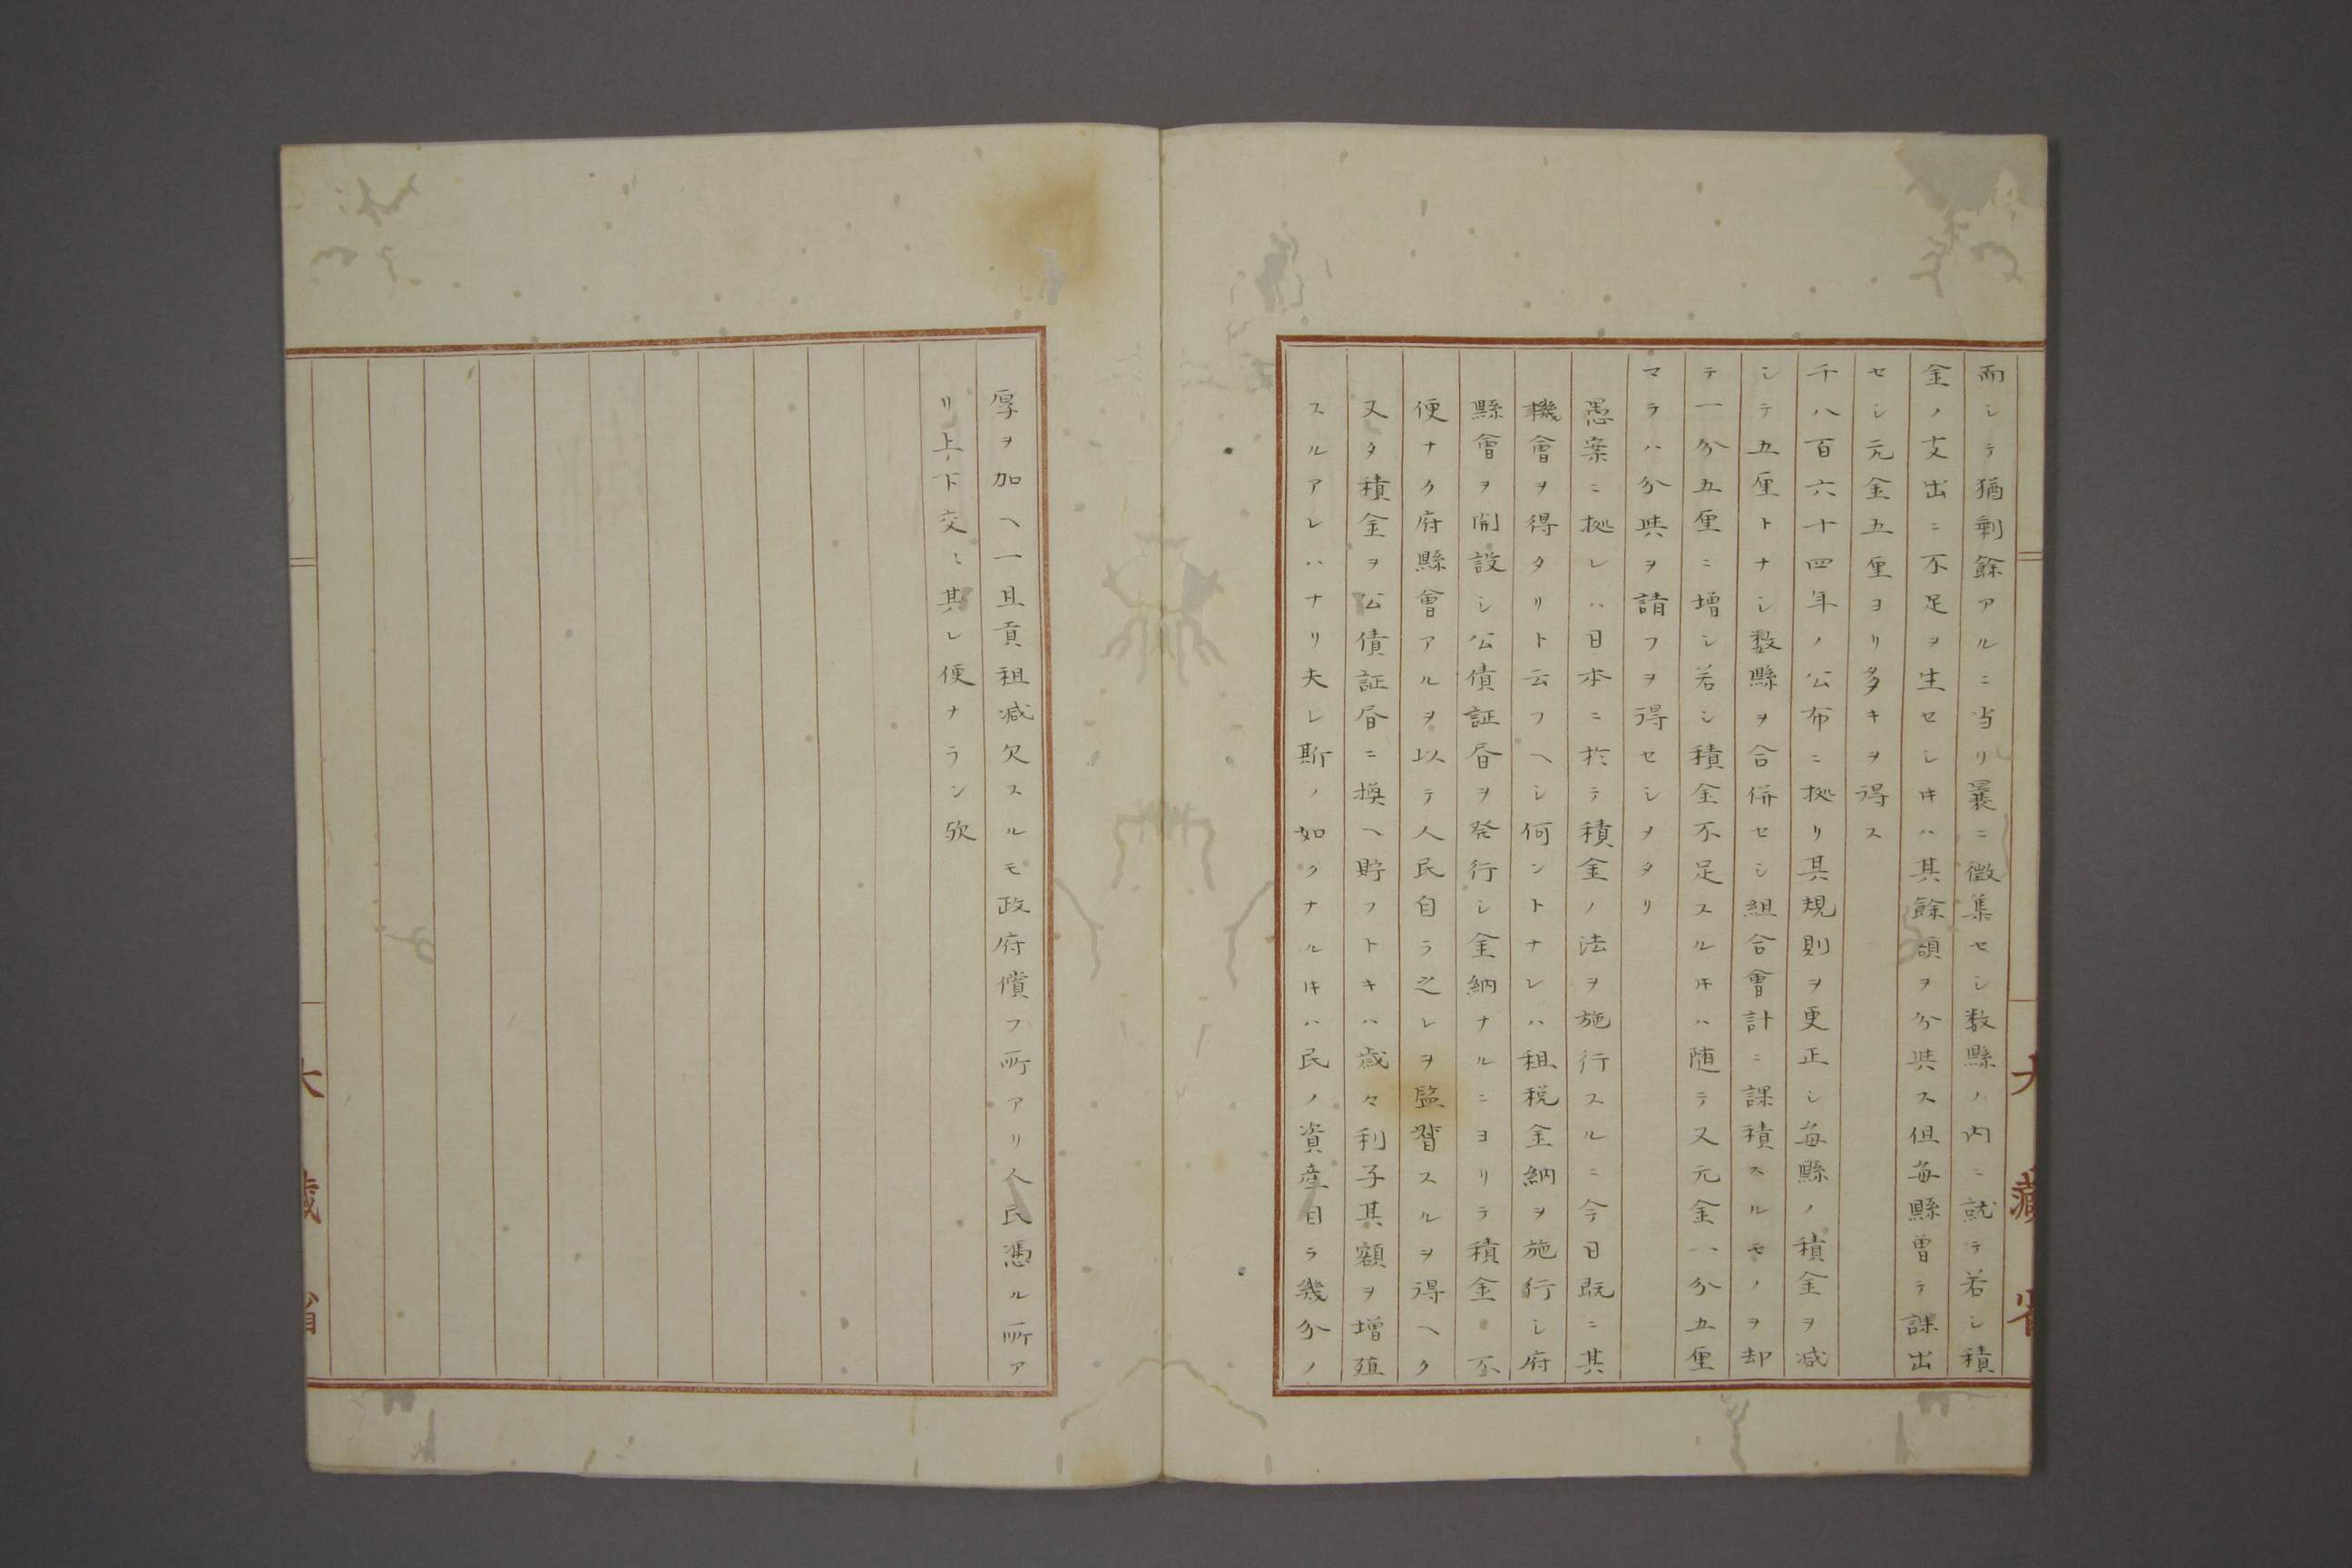 而シテ猶剰餘アルニ当リ曩ニ徴集セシ数縣ノ内ニ就テ若シ積
金ノ支出ニ不足ヲ生セシ𪜈ハ其餘額ヲ分與ス但毎縣曽テ課出
セシ元金五厘ヨリ多キヲ得ス
千八百六十四年ノ公布ニ拠リ其規則ヲ更正シ毎縣ノ積金ヲ減
シテ五厘トナシ数縣ヲ合併セシ組合會計ニ課積スルモノヲ却
テ一分五厘ニ増シ若シ積金不足スル𪜈ハ随テ又元金一分五厘
マラハ分與ヲ請フヲ得セシヲタリ
愚案ニ拠レハ日本ニ於テ積金ノ法ヲ施行スルニ今日既ニ其
機會ヲ得タリト云フヘシ何ントナレハ租税金納ヲ施行シ府
縣會ヲ開設シ公債証昏ヲ発行シ金納ナルニヨリテ積金ニ不
便ナク府縣會アルヲ以テ人民自ラ之レヲ監督スルヲ得ヘク
又タ積金ヲ公債証昏ニ換ヘ貯フトキハ歳々利子其額ヲ増殖
スルアレハナリ夫レ斯ノ如クナル𪜈ハ民ノ資産自ラ幾分ノ
大藏省
厚ヲ加ヘ一旦貢租減欠スルモ政府償フ所アリ人民憑ル所ア
リ上下交ミ其レ便ナラン歟
大藏省